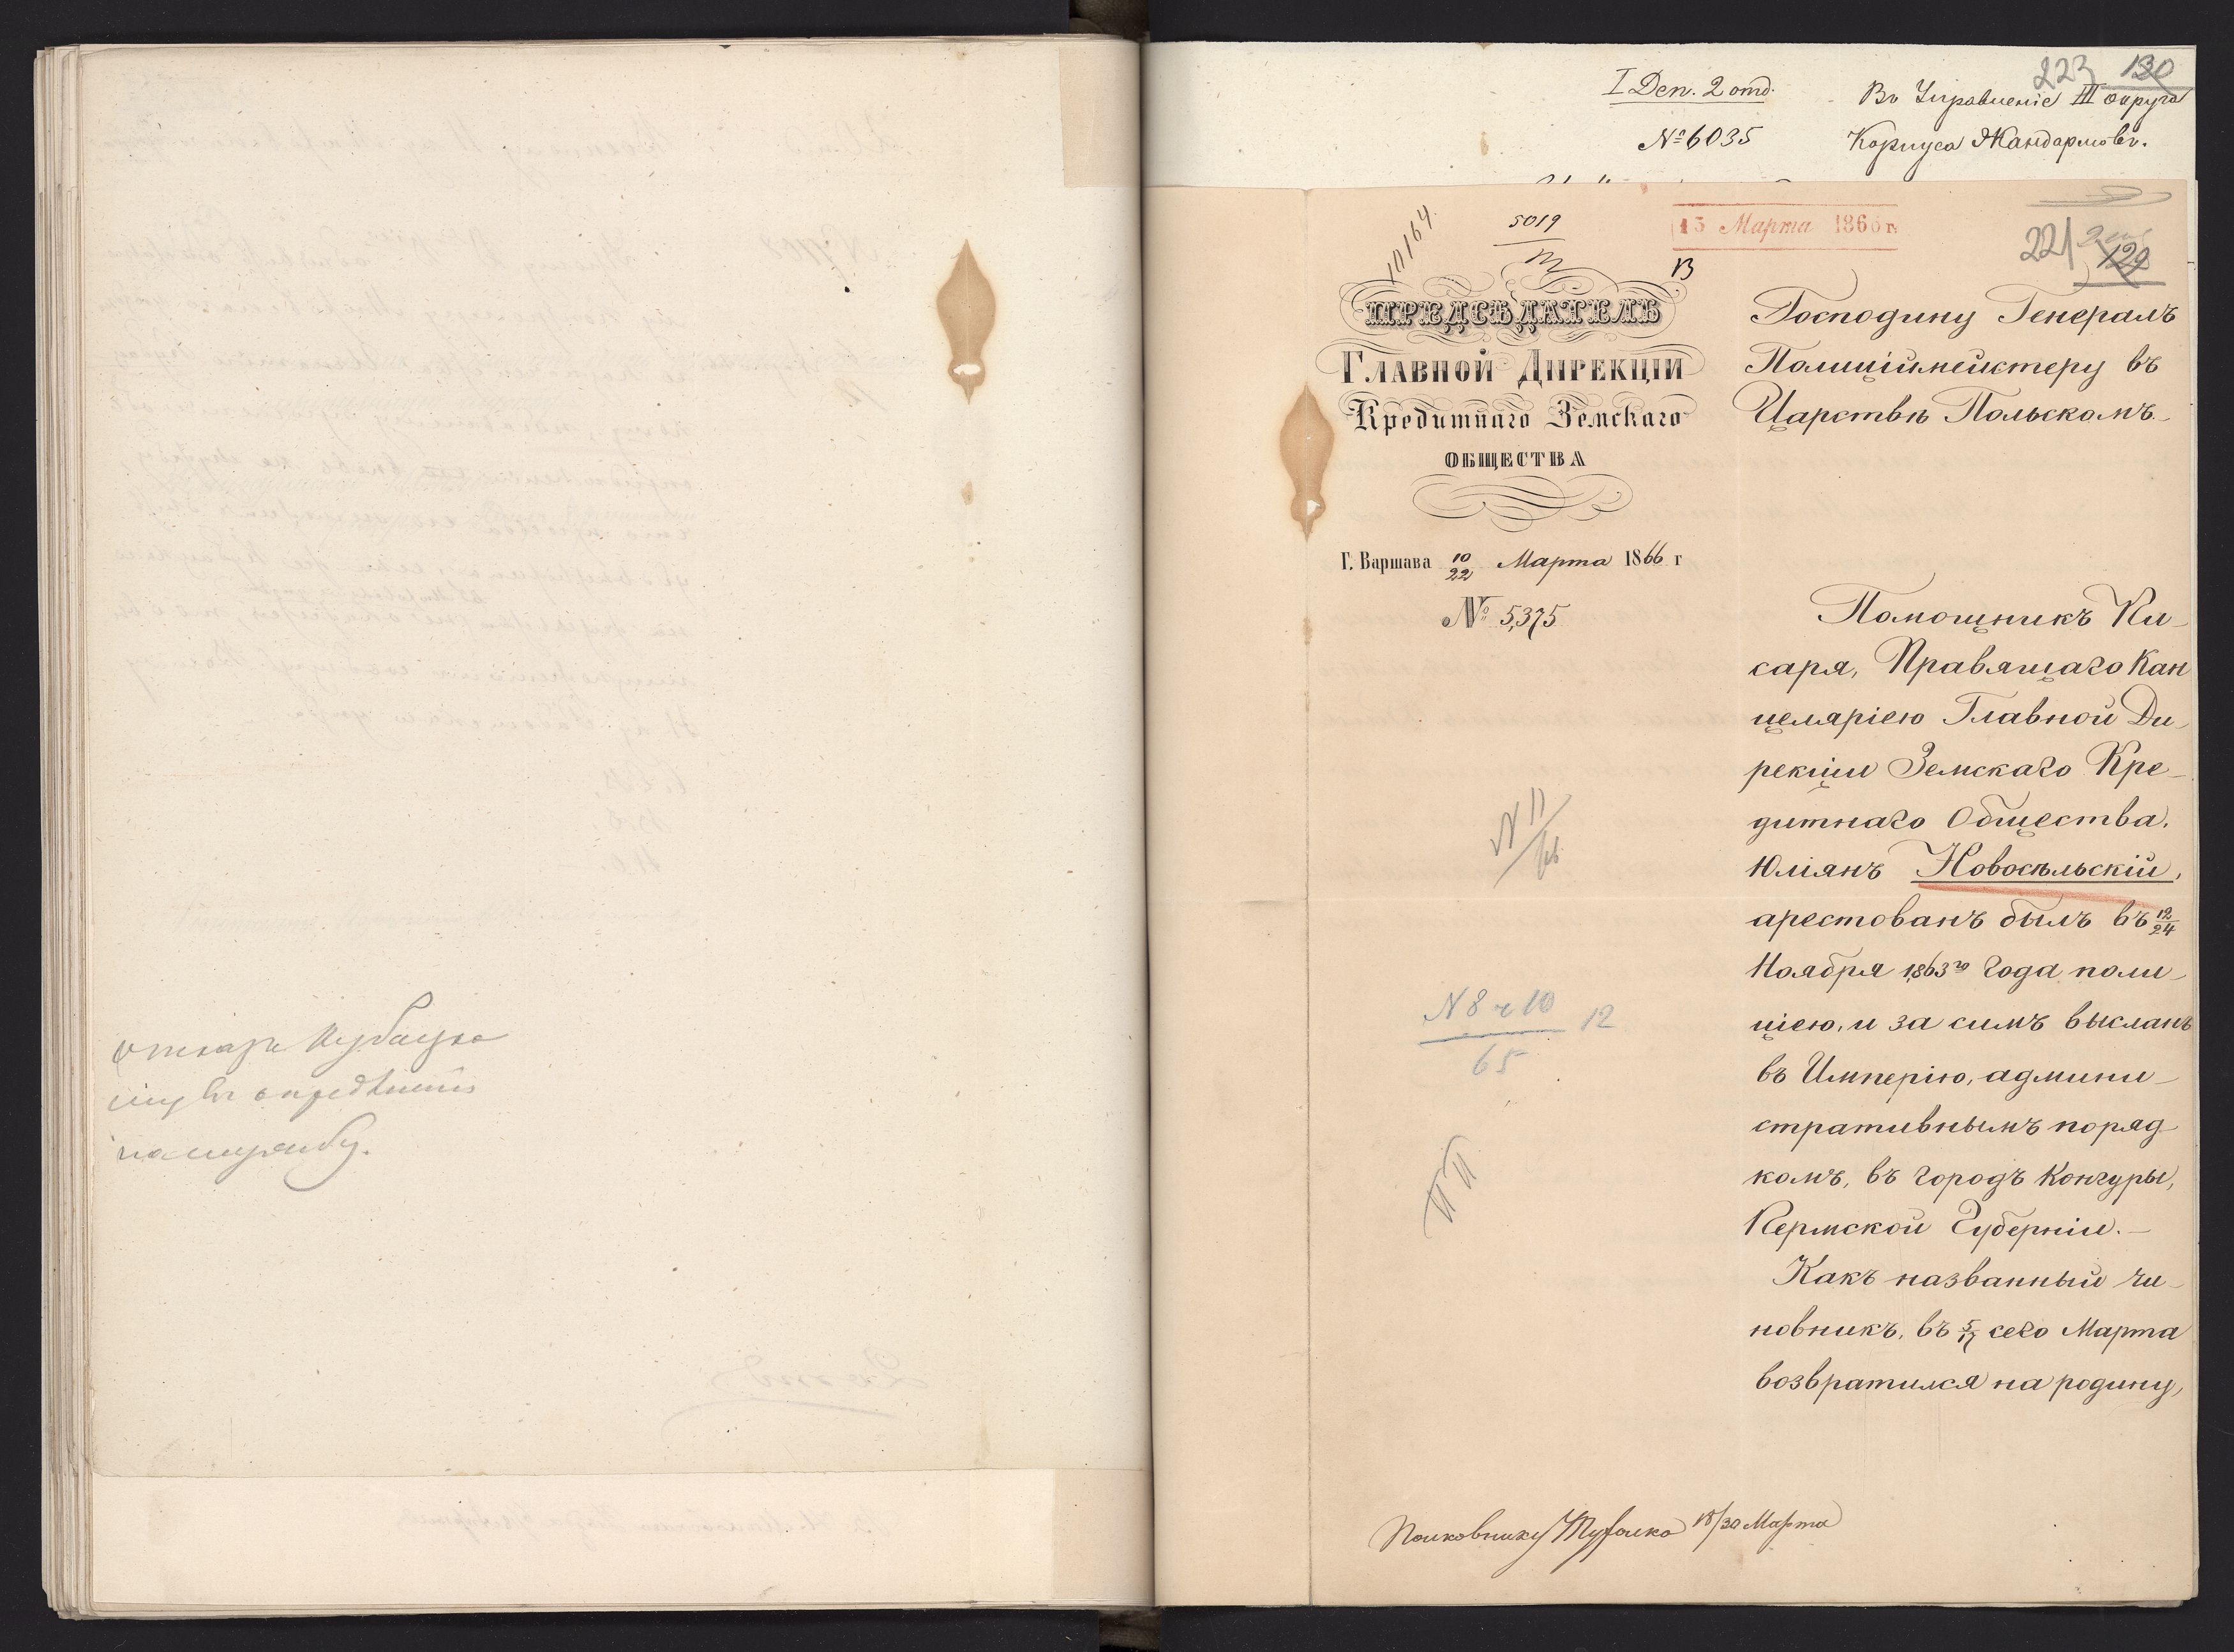 на службу.
223 130
I Деп. 2 отд.
№ 6035
Въ Управленіе III округа
Корпуса Жандармовъ.
5019
13 Марта 1866 г.
221
129
В
ПРЕДСѢДАТЕЛЬ
ГЛАВНОЙ ДИРЕКЦІИ
Кредитнаго Земскаго
ОБЩЕСТВА
Г. Варшава 10/22 Марта 1866 г
№ 5,375
Господину Генералъ
Полиціймейстеру въ
Царствѣ Польскомъ.
Помощникъ Пи-
саря, Правящаго Кан
целяріею Главной Ди-
рекціи Земскаго Кре-
дитнаго Общества.
Юліянъ Новосѣльскій,
арестованъ былъ въ 12/24
Ноября 1863го года поли-
ціею, и за симъ высланъ
въ Имперію, админи-
стративнымъ поряд-
комъ, въ городъ Конгуры,
Пермской Губерніи.-
Какъ названный чи-
новникъ, въ 5/17 сего Марта
возвратился на родину,
N 11/66
N 8 ч 10 12
65
Полковнику Тухолко 18/30 Марта